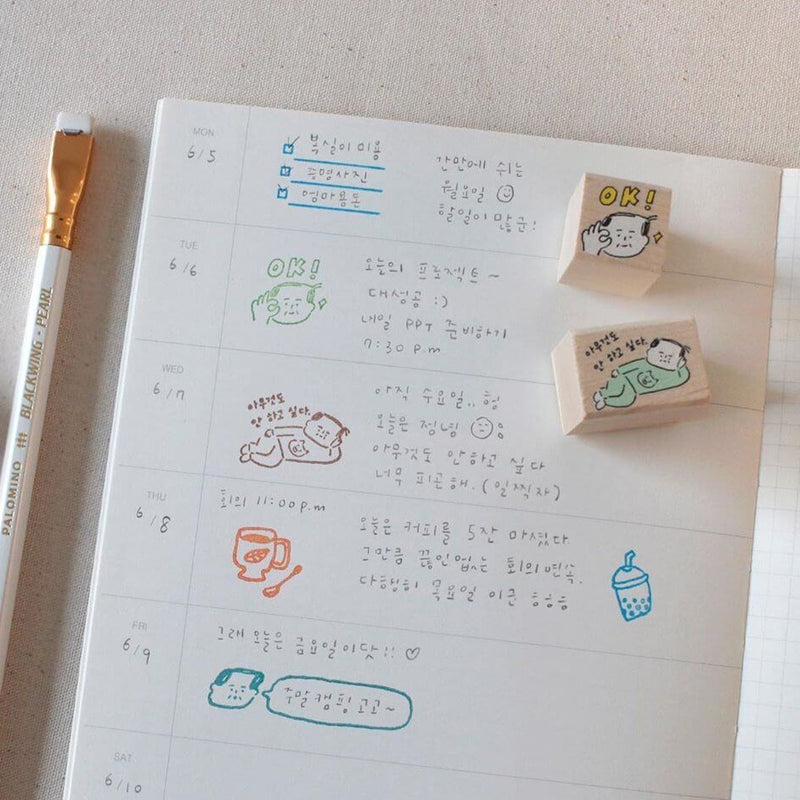 MON
6/5
복실이 미용
증명사진
엄마용돈
간만에 쉬는
월요일
할일이 많군!
OK!
TUE
6/6
OK!
오늘의 프로젝트~
대성공 :)
내일 PPT 준비하기
7:30 p.m
아무것도
안 하고 싶다.
WED
6/7
아무것도
안 하고 싶다.
아직 수요일.. 헝
오늘은 정녕
아무것도 안하고 싶다
너무 피곤해. (일찍자)
THU
6/8
회의 11:00 p.m
오늘은 커피를 5잔 마셨다.
그만큼 끊임없는 회의 연속.
다행히 목요일 이군 ㅎㅎㅎ
FRI
6/9
그래 오늘은 금요일이닷!! ♡
주말 캠핑 고고~
SAT
6/10
PALOMINO BLACKWING - PEARL